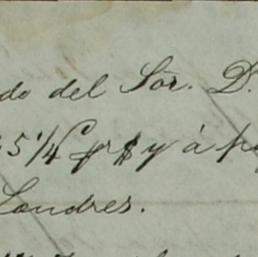 do del Sor. D.
5 1/4 pr $ y á
Londres.